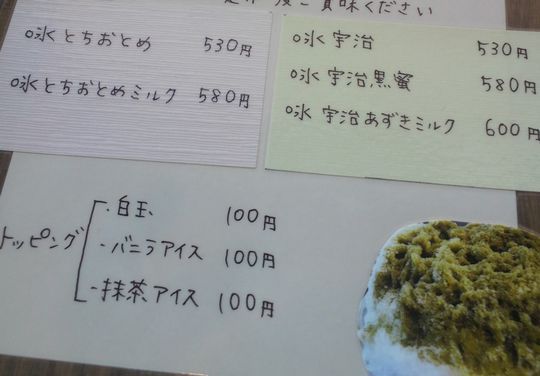 ご賞味ください
氷とちおとめ 530円
氷とちおとめミルク 580円
氷 宇治 530円
氷 宇治黒蜜 580円
氷 宇治あずきミルク 600円
トッピング
・白玉 100円
・バニラアイス 100円
・抹茶アイス 100円